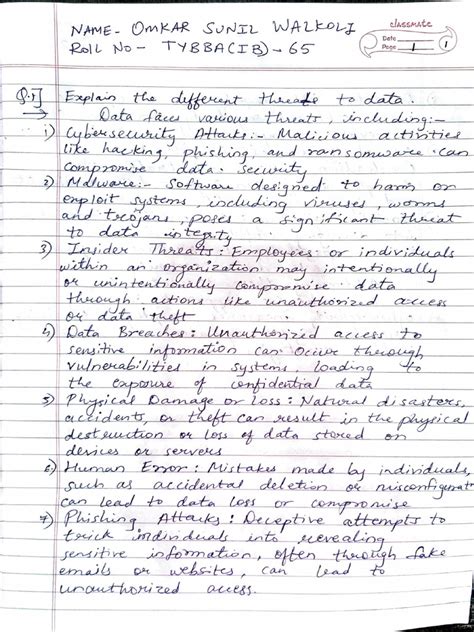 NAME- OMKAR SUNIL WALKOLI
classmate
Date
Page 1 1
ROLL NO- TYBBA(IB)-65
Q.1] Explain the different threats to data.
→ Data faces various threats, including:-
1) Cybersecurity Attacks:- Malicious activities
like hacking, phishing, and ransomware can
compromise data security
2) Malware:- Software designed to harm or
exploit systems, including viruses, worms
and trojans, poses a significant threat
to data integrity
3) Insider Threats: Employees or individuals
within an organization may intentionally
or unintentionally compromise data
through actions like unauthorized access
or data theft
Data Breaches: Unauthorized access to
sensitive information can occur through
vulnerabilities in systems, loading to
the exposure of confidential data
Physical Damage or Loss: Natural disasters,
accidents, or theft can result in the physical
destruction or loss of data stored on
devices or servers
6) Human Error: Mistakes made by individuals,
such as accidental deletion or misconfigurat
can lead to data loss or compromise
7) Phishing Attacks: Deceptive attempts to
trick individuals into revealing
sensitive information, often through fake
emails or websites, can lead to
unauthorized access.